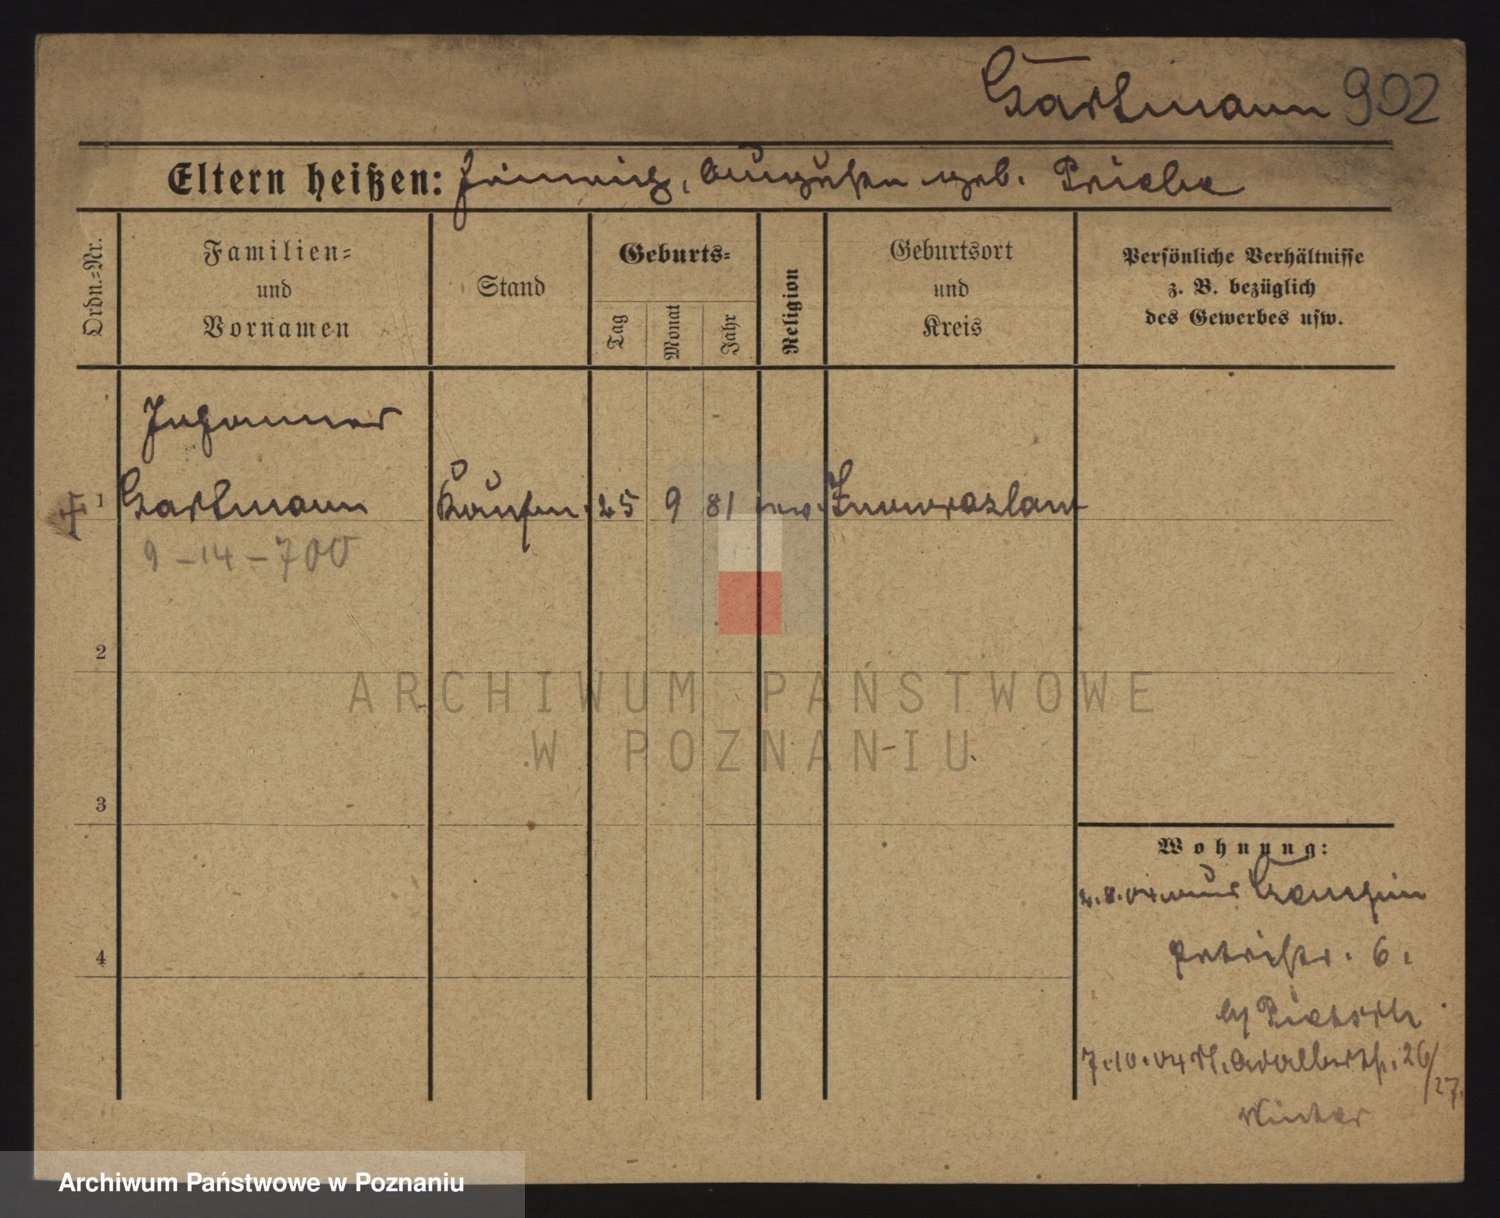 Gartmann 902
Eltern heißen: Heinrich, Auguste geb. Priebe
Ordn.-Nr.
Familien-
und
Vornamen
Stand
Geburts-
Tag
Monat
Jahr
Religion
Geburtsort
und
Kreis
Persönliche Verhältnisse
z. B. bezüglich
des Gewerbes usw.
Johannes
1 Gartmann Kaufm. 25 9 81 Inowrazlaw
9-14-700
2
3
4
Wohnung:
2.8.04 aus
Petristr. 6.
by
7.10.04 St. Adalbertstr. 26/27.
Winter
ARCHIWUM PAŃSTWOWE
W POZNANIU
Archiwum Państwowe w Poznaniu